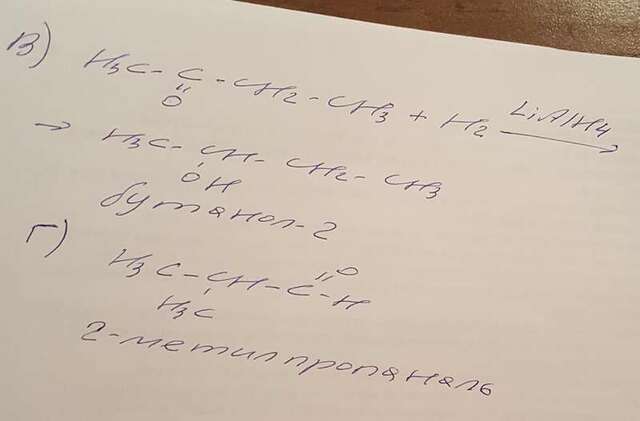 В) H3C-C-CH2-CH3 + H2 LiAlH4
O
→ H3C-CH-CH2-CH3
OH
бутанол-2
Г) O
H3C-CH-C-H
H3C
2-метилпропаналь